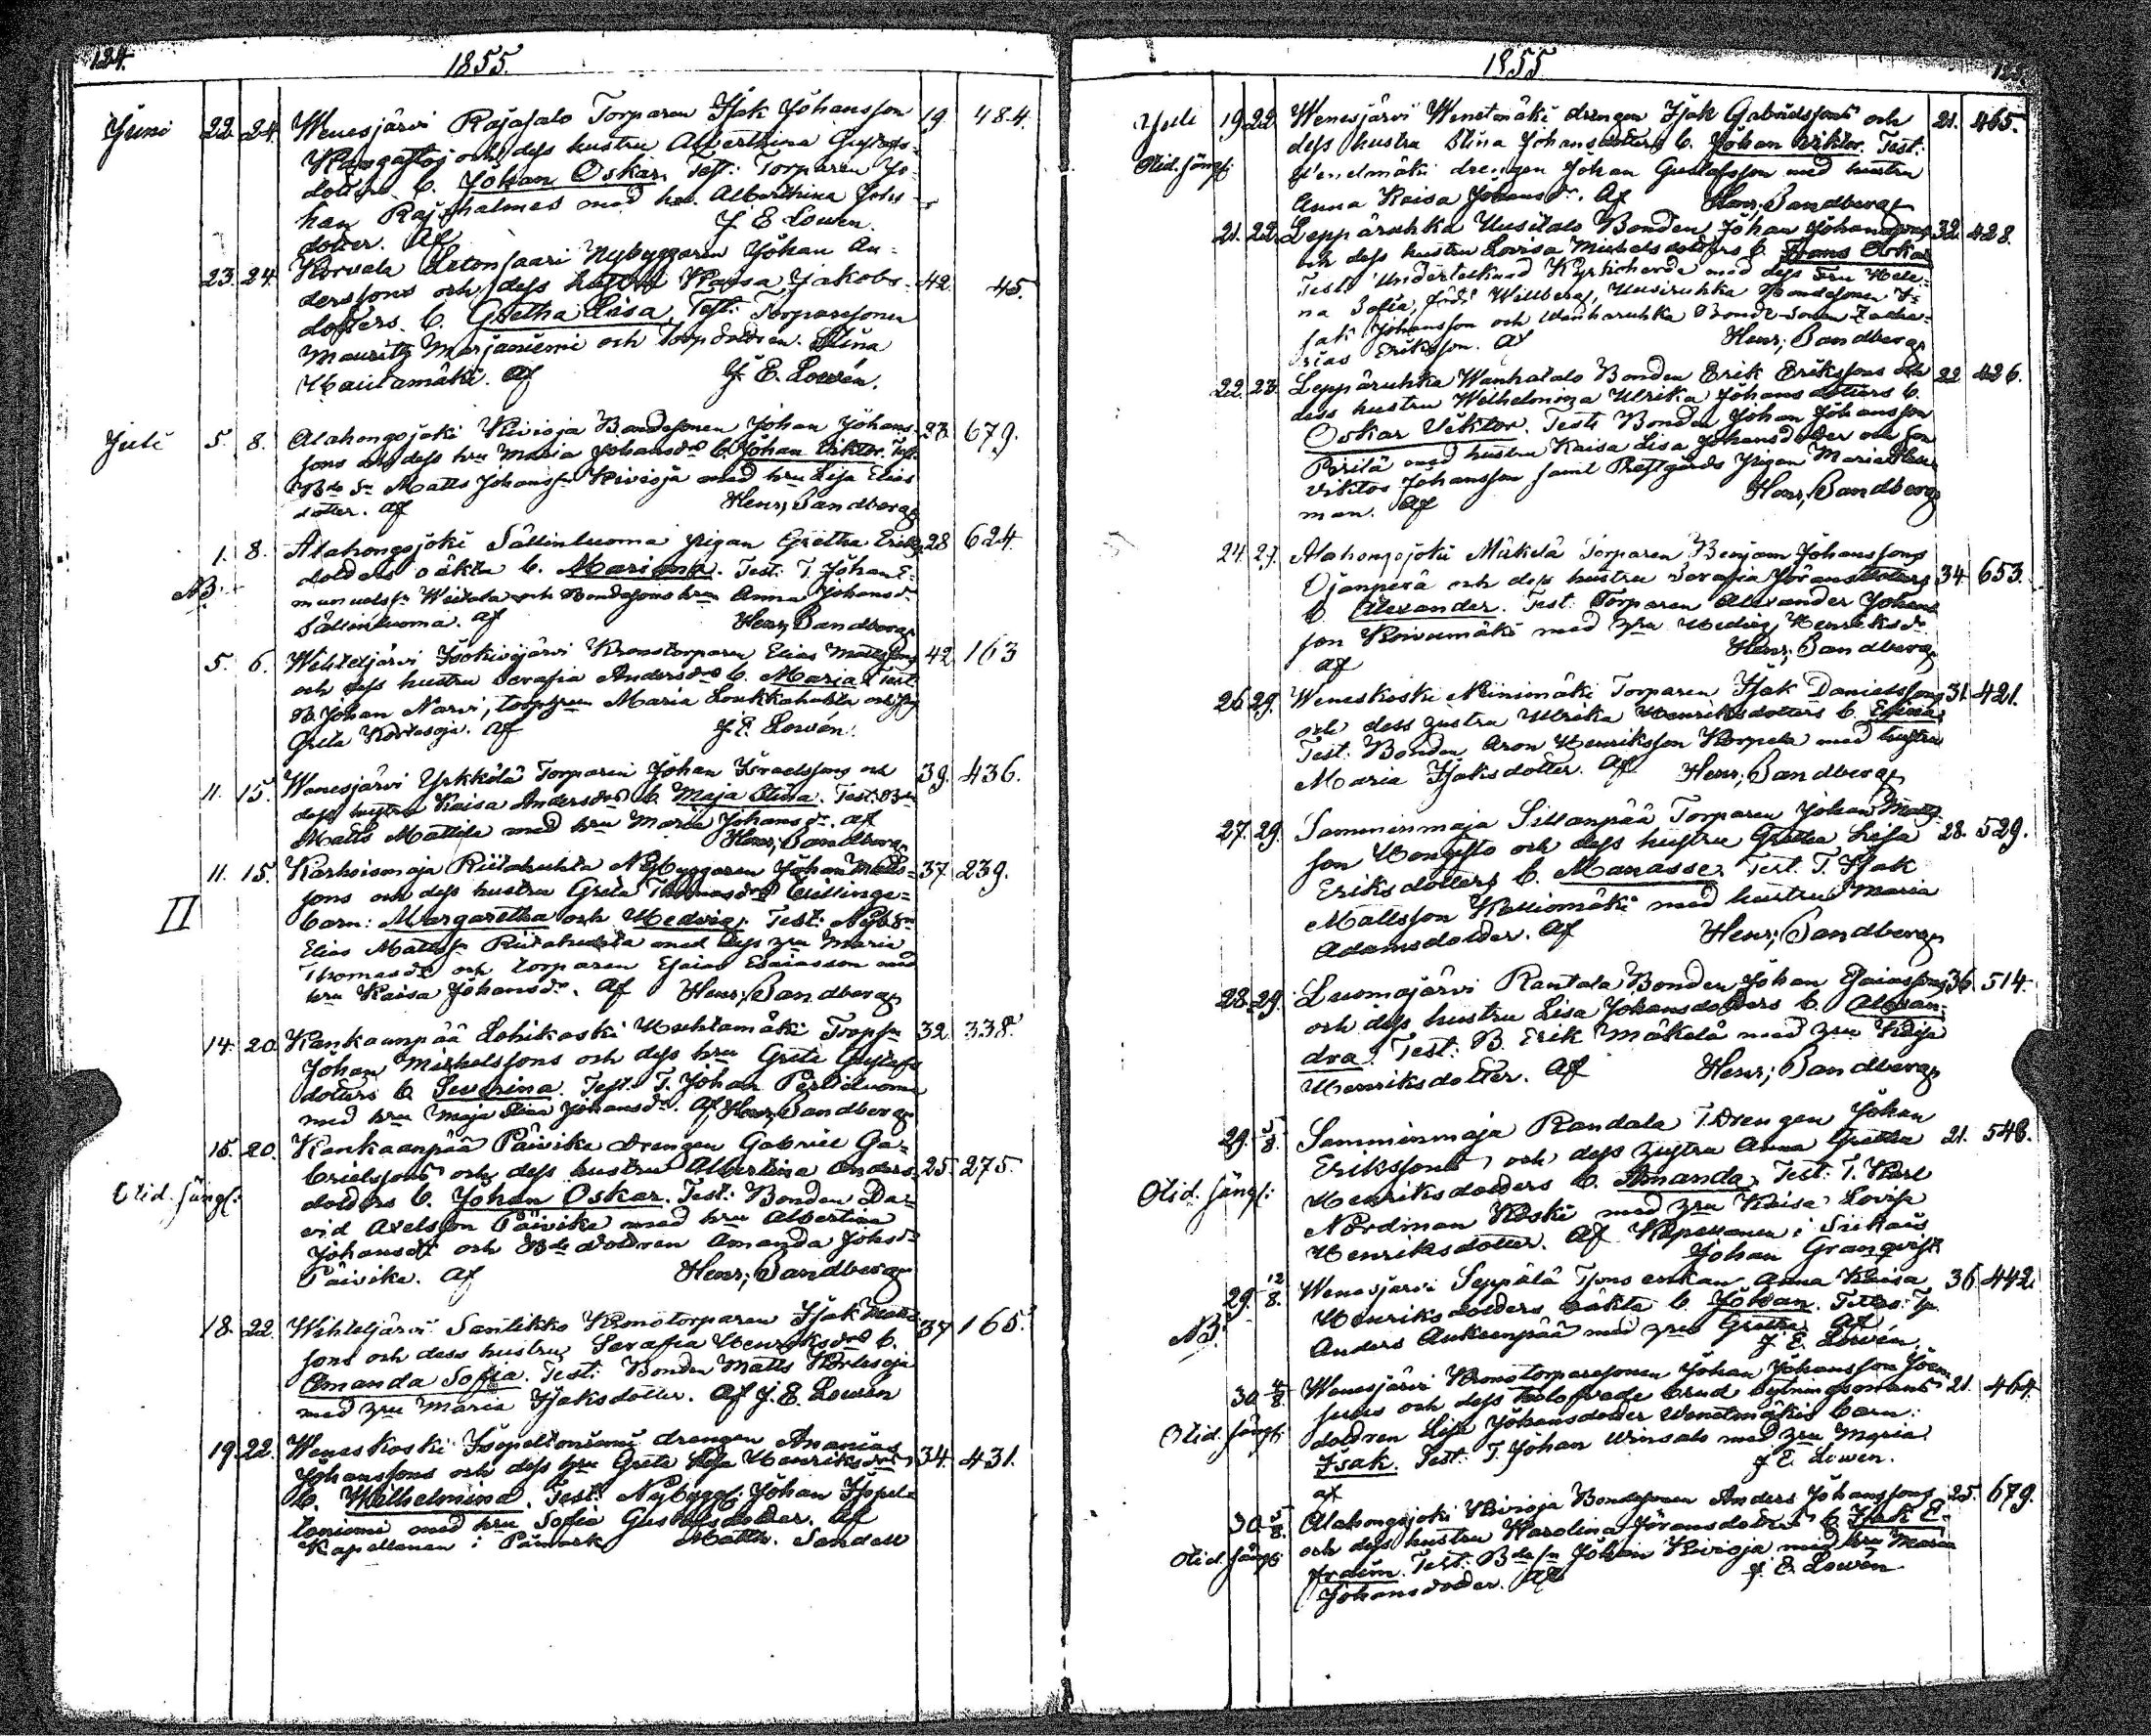 124.
1855.
Juni 22. 24. Wenesjärvi Rajasalo Torparen Isak Johansson 19. 484.
Kangasto; och dess hustru Alberthina Gustafs-
dotters b. Johan Oskar. Test: Torparen Jo-
han Rajahalmes med hu. Alberthina Johs
dotter. Af J E Lowén.
23. 24. Korvala Letonsaari Nybyggaren Johan An- 42. 45.
derssons och dess hustru Kajsa Jakobs-
dotters b. Gretha Lisa. Test: Torparesonen
Mauritz Marjaniemi och Torpdottren Stina
Hautamäki. Af J. E. Lowén.
Juli 5. 8. Alahongojoki Kivioja Bondesonen Johan Johans- 23 679.
sons och dess hru Maria Johansdrs b. Johan Viktor. Test.
Bde Sn Matts Johanss. Kivioja med hru Lisa Elias
dotter. Af Henr; Sandberg
1. 8. Alahongojoki Sällinluoma pigan Gretha Eriks 28 624.
NB.
dotters oäkta b. Mariana. Test: T. Johan E-
manuelss. Weitala och Bondesons hru Anna Johansdr
Sällinluoma. Af Henr; Sandberg
5. 6. Wihteljärvi Isokivijärvi Kronotorparen Elias Mattssons 42 163
och dess hustru Serafia Andersdrs b. Maria. Test.
B. Johan Narvi, torpgum Maria Loukkahuhta och pig
Greta Kortesoja. Af J E. Lowén.
11. 15. Wenesjärvi Yrkkölä Torparen Johan Israelssons och 39. 436.
dess hustru Kaisa Andersdrs b. Maja Stina. Test: Bdn
Matts Mattila med hru Maria Johansdr. Af
Henr; Sandberg
11. 15. Karhoismaja Riitahuhta Nybyggaren Johan Matts- 37 239.
II
sons och dess hustru Greta Thomasdrs tvillinge-
barn: Margaretha och Hedvig. Test: Nybn
Elias Matts. Riitahuhta med dess hru Maria
Thomasdr och torparen Esaias Esaiasson med
hru Kaisa Johansdr. Af Henr; Sandberg
14. 20. Kankaanpää Lohikoski Huhtamäki Torpsn 32. 338.
Johan Michelssons och dess hru Greta Gustafs
dotters b. Severina. Test. T. Johan Perttiluoma
med hru Maja Stina Johansdr. Af Henr; Sandberg
15. 20. Kankaanpää Päivike drengen Gabriel Ga-
brielssons och dess hustru Albertina Anders- 25 275.
Otid. sängl:
dotters b. Johan Oskar. Test: Bonden Da-
vid Axelsson Päivike med hru Albertina
Johansdr och Bde dottren Amanda Johsdr
Päivike. Af Henr; Sandberg
18. 22. Wihteljärvi Santikko Kronotorparen Isak Matts 37 165.
sons och dess hustru Serafia Henriksdrs b.
Amanda Sofia. Test: Bonden Matts Kortesoja
med hru Maria Isaksdotter. Af J. E. Lowén
19. 22. Weneskoski Isopeltoniemi drengen Ananias 34. 431.
Johanssons och dess hru Greta Lisa Henriksdrs
b. Wilhelmina. Test: Nybygg. Johan Isopel-
toniemi med hru Sofia Gustafsdotter. Af
Kapellanen i Påmark Matth. Sandell
1855
125.
Juli 19 22 Wenesjärvi Wenetmäki drengen Isak Gabrielssons och 21. 465.
Otid. sängl:
dess hustru Stina Johansdotters b. Johan Viktor. Test:
Wenetmäki drengen Johan Gustafsson med hustru
Anna Kaisa Johansdr. Af Henr; Sandberg
21. 22. Leppäruhka Uusitalo Bonden Johan Johanssons 32. 428.
och dess hustru Lovisa Michelsdotters b. Frans Oskar
Test: Undertecknad Kyrkoherde med dess Fru Hele-
na Sofia, född Willberg, Uusiruhka Bondesonen I-
sak Johansson och Wanharuhka Bonde-Sonen Zacha-
rias Eriksson. Af Henr; Sandberg
22. 23. Leppäruhka Wanhatalo Bonden Erik Erikssons och 22 426.
dess hustru Wilhelmina Ulrika Johansdotters b.
Oskar Viktor. Test: Bonden Johan Johansson
Perilä med hustru Kaisa Lisa Johansdotter och son
Viktor Johansson samt Prestgårds Pigan Maria
man. Af Henr; Sandberg
24. 29. Alahongojoki Mäkelä Torparen Benjam Johanssons
Ojanperä och dess hustru Serafia Jöransdotters 34 653.
b. Alexander. Test. Torparen Alexander Johans
son Koivumäki med hru Hedvig Henriksdr
Af Henr; Sandberg
26. 29. Weneskoski Niinimäki Torparen Isak Danielssons 31. 421.
och dess hustru Ulrika Henriksdotters b. Elina.
Test: Bonden Aron Henriksson Korpela med hustru
Maria Isaksdotter. Af Henr; Sandberg
27. 29. Samminmaja Sillanpää Torparen Johan Matts
son Hongisto och dess hustru Gretha Lisa 28. 529.
Eriksdotters b. Manasse. Test. T. Isak
Mattsson Kalliomäki med hustru Maria
Adamsdotter. Af Henr; Sandberg
28. 29. Luomajärvi Rantala Bonden Johan Esaiassons 36. 514.
och dess hustru Lisa Johansdotters b. Alexan-
dra. Test: B. Erik Mäkelä med hru Kaisa
Henriksdotter. Af Henr; Sandberg
29. 5/8. Samminmaja Randala T.drengen Johan
Erikssons och dess hustru Anna Gretha 21. 548.
Otid. sängl:
Henriksdotters b. Amanda. Test: T. Karl
Nordman Koski med hru Kaisa Lovisa
Henriksdotter. Af Kapellanen i Siikais
Johan Granqvist
29. 12/8. Wenesjärvi Seppälä Tjens enkan Anna Kaisa 36. 442.
NB.
Henriksdotters oäkta b. Johan. Test: Tp.
Anders Aukeenpää med hru Gretha. Af
J E. Lowén.
30 4/8. Wenesjärvi Kronotorparesonen Johan Johansson
och dess trolofvade brud Sytningsmans 21. 464
Otid. sängl:
dottren Lisa Johansdotter Wenetmäkis barn:
Isak. Test: T. Johan Winsalo med hru Maria
Af J E. Lowén.
30 5/8. Alahongojoki Kivioja Bondesonen Anders Johanssons 25. 679.
Otid. sängl:
och dess hustru Karolina Jöransdotters b. Isak E-
fraim. Test: Bde sn Johan Kivioja med hru Maria
Johansdotter. Af J. E. Lowén